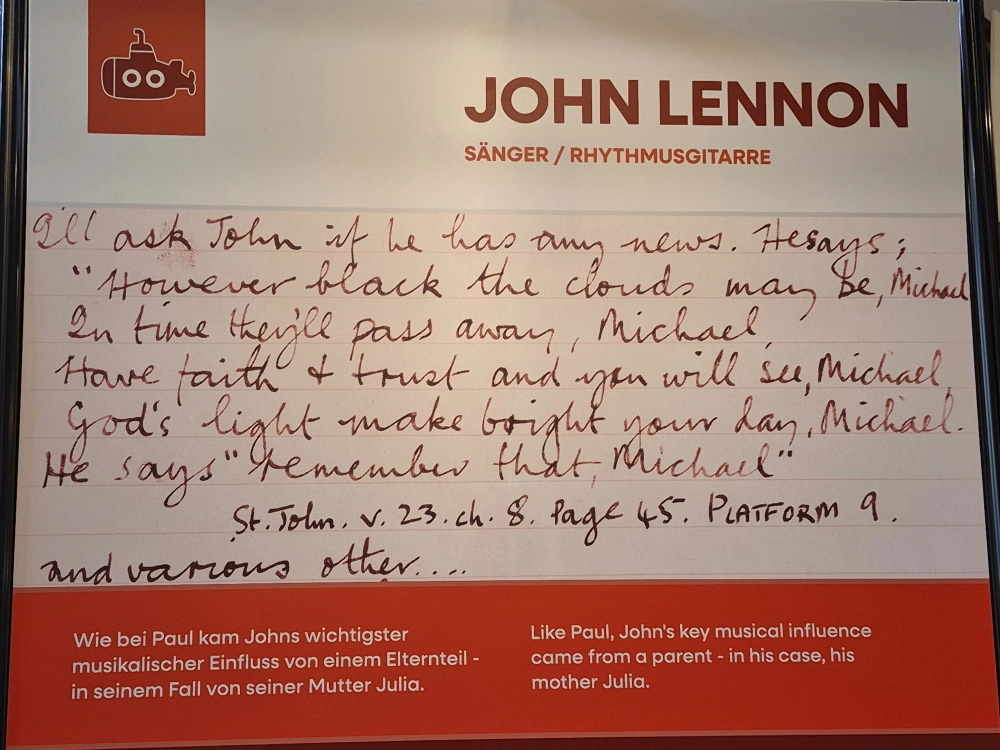 JOHN LENNON
SÄNGER / RHYTHMUSGITARRE
I'll ask John if he has any news. He says;
"However black the clouds may be, Michael
In time they'll pass away, Michael,
Have faith & trust and you will see, Michael,
God's light make bright your day, Michael.
He says "remember that, Michael"
St. John. v. 23. ch. 8. Page 45. PLATFORM 9.
and various other....
Wie bei Paul kam Johns wichtigster
musikalischer Einfluss von einem Elternteil -
in seinem Fall von seiner Mutter Julia.
Like Paul, John's key musical influence
came from a parent - in his case, his
mother Julia.